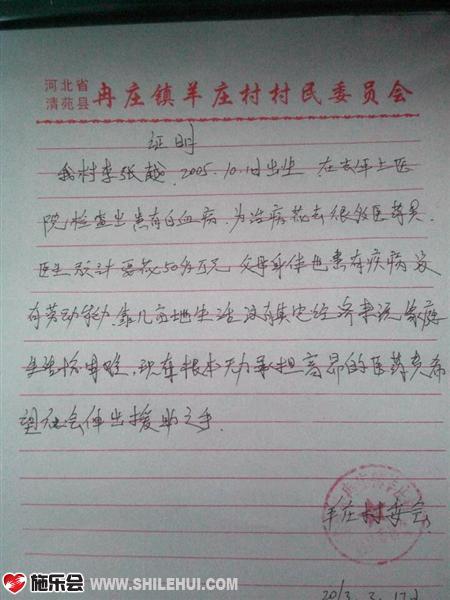 河北省
清苑县
冉庄镇羊庄村村民委员会
证明
我村李张越，2005.10.1日出生，在去年上医
院检查出患有白血病，为治病花去很多医药费，
医生预计要花50多万元，父母身体也患有疾病，没
有劳动能力，靠几亩地生活，没有其它经济来源，家庭
生活恰困难，现在根本无力承担高昂的医药费，希
望社会伸出援助之手。
羊庄村委会
2013.3.17日
施乐会 WWW.SHILEHUI.COM